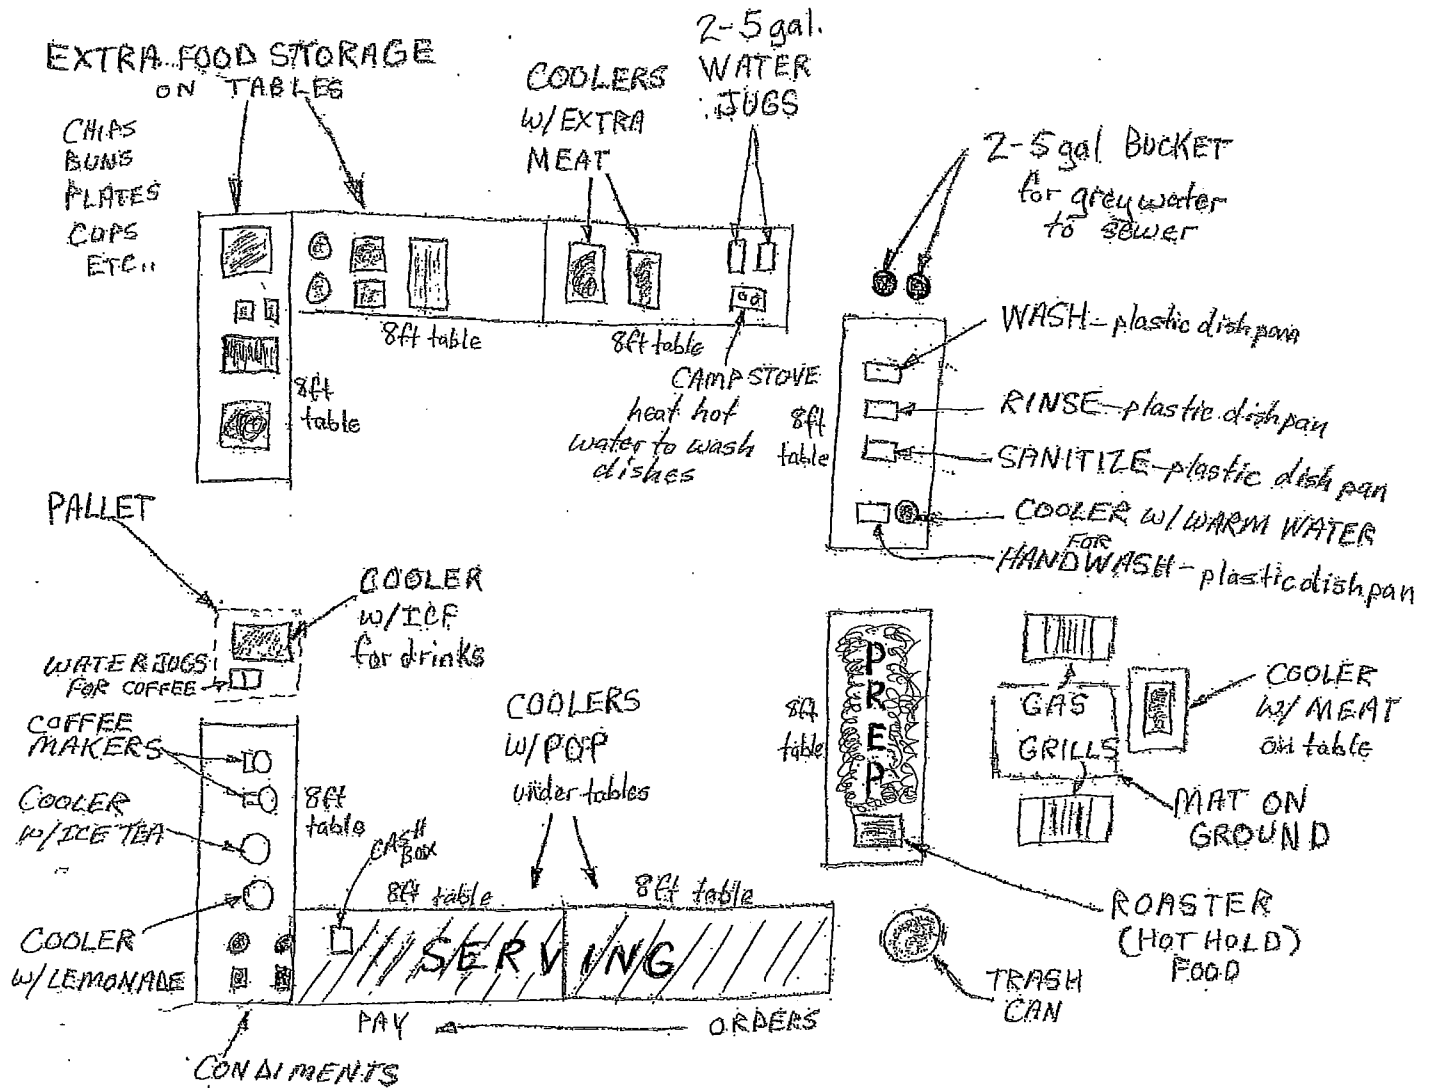 EXTRA FOOD STORAGE
ON TABLES
CHIPS
BUNS
PLATES
CUPS
ETC..
COOLERS
W/EXTRA
MEAT
2-5 gal.
WATER
JUGS
2-5 gal BUCKET
for greywater
to sewer
8ft table
8ft table
8ft
table
CAMP STOVE
heat hot
water to wash
dishes
8ft
table
WASH-plastic dishpan
RINSE-plastic dishpan
SANITIZE-plastic dish pan
COOLER W/WARM WATER
FOR
HANDWASH-plastic dish pan
PALLET
COOLER
W/ICE
for drinks
WATER JUGS
FOR COFFEE
COFFEE
MAKERS
COOLER
W/ICE TEA
COOLER
W/LEMONADE
8ft
table
CASH
BOX
COOLERS
W/POP
under tables
8ft table
8ft table
SERVING
PAY
ORDERS
CONDIMENTS
8ft
table
PREP
GAS
GRILLS
COOLER
W/MEAT
on table
MAT ON
GROUND
ROASTER
(HOT HOLD)
FOOD
TRASH
CAN